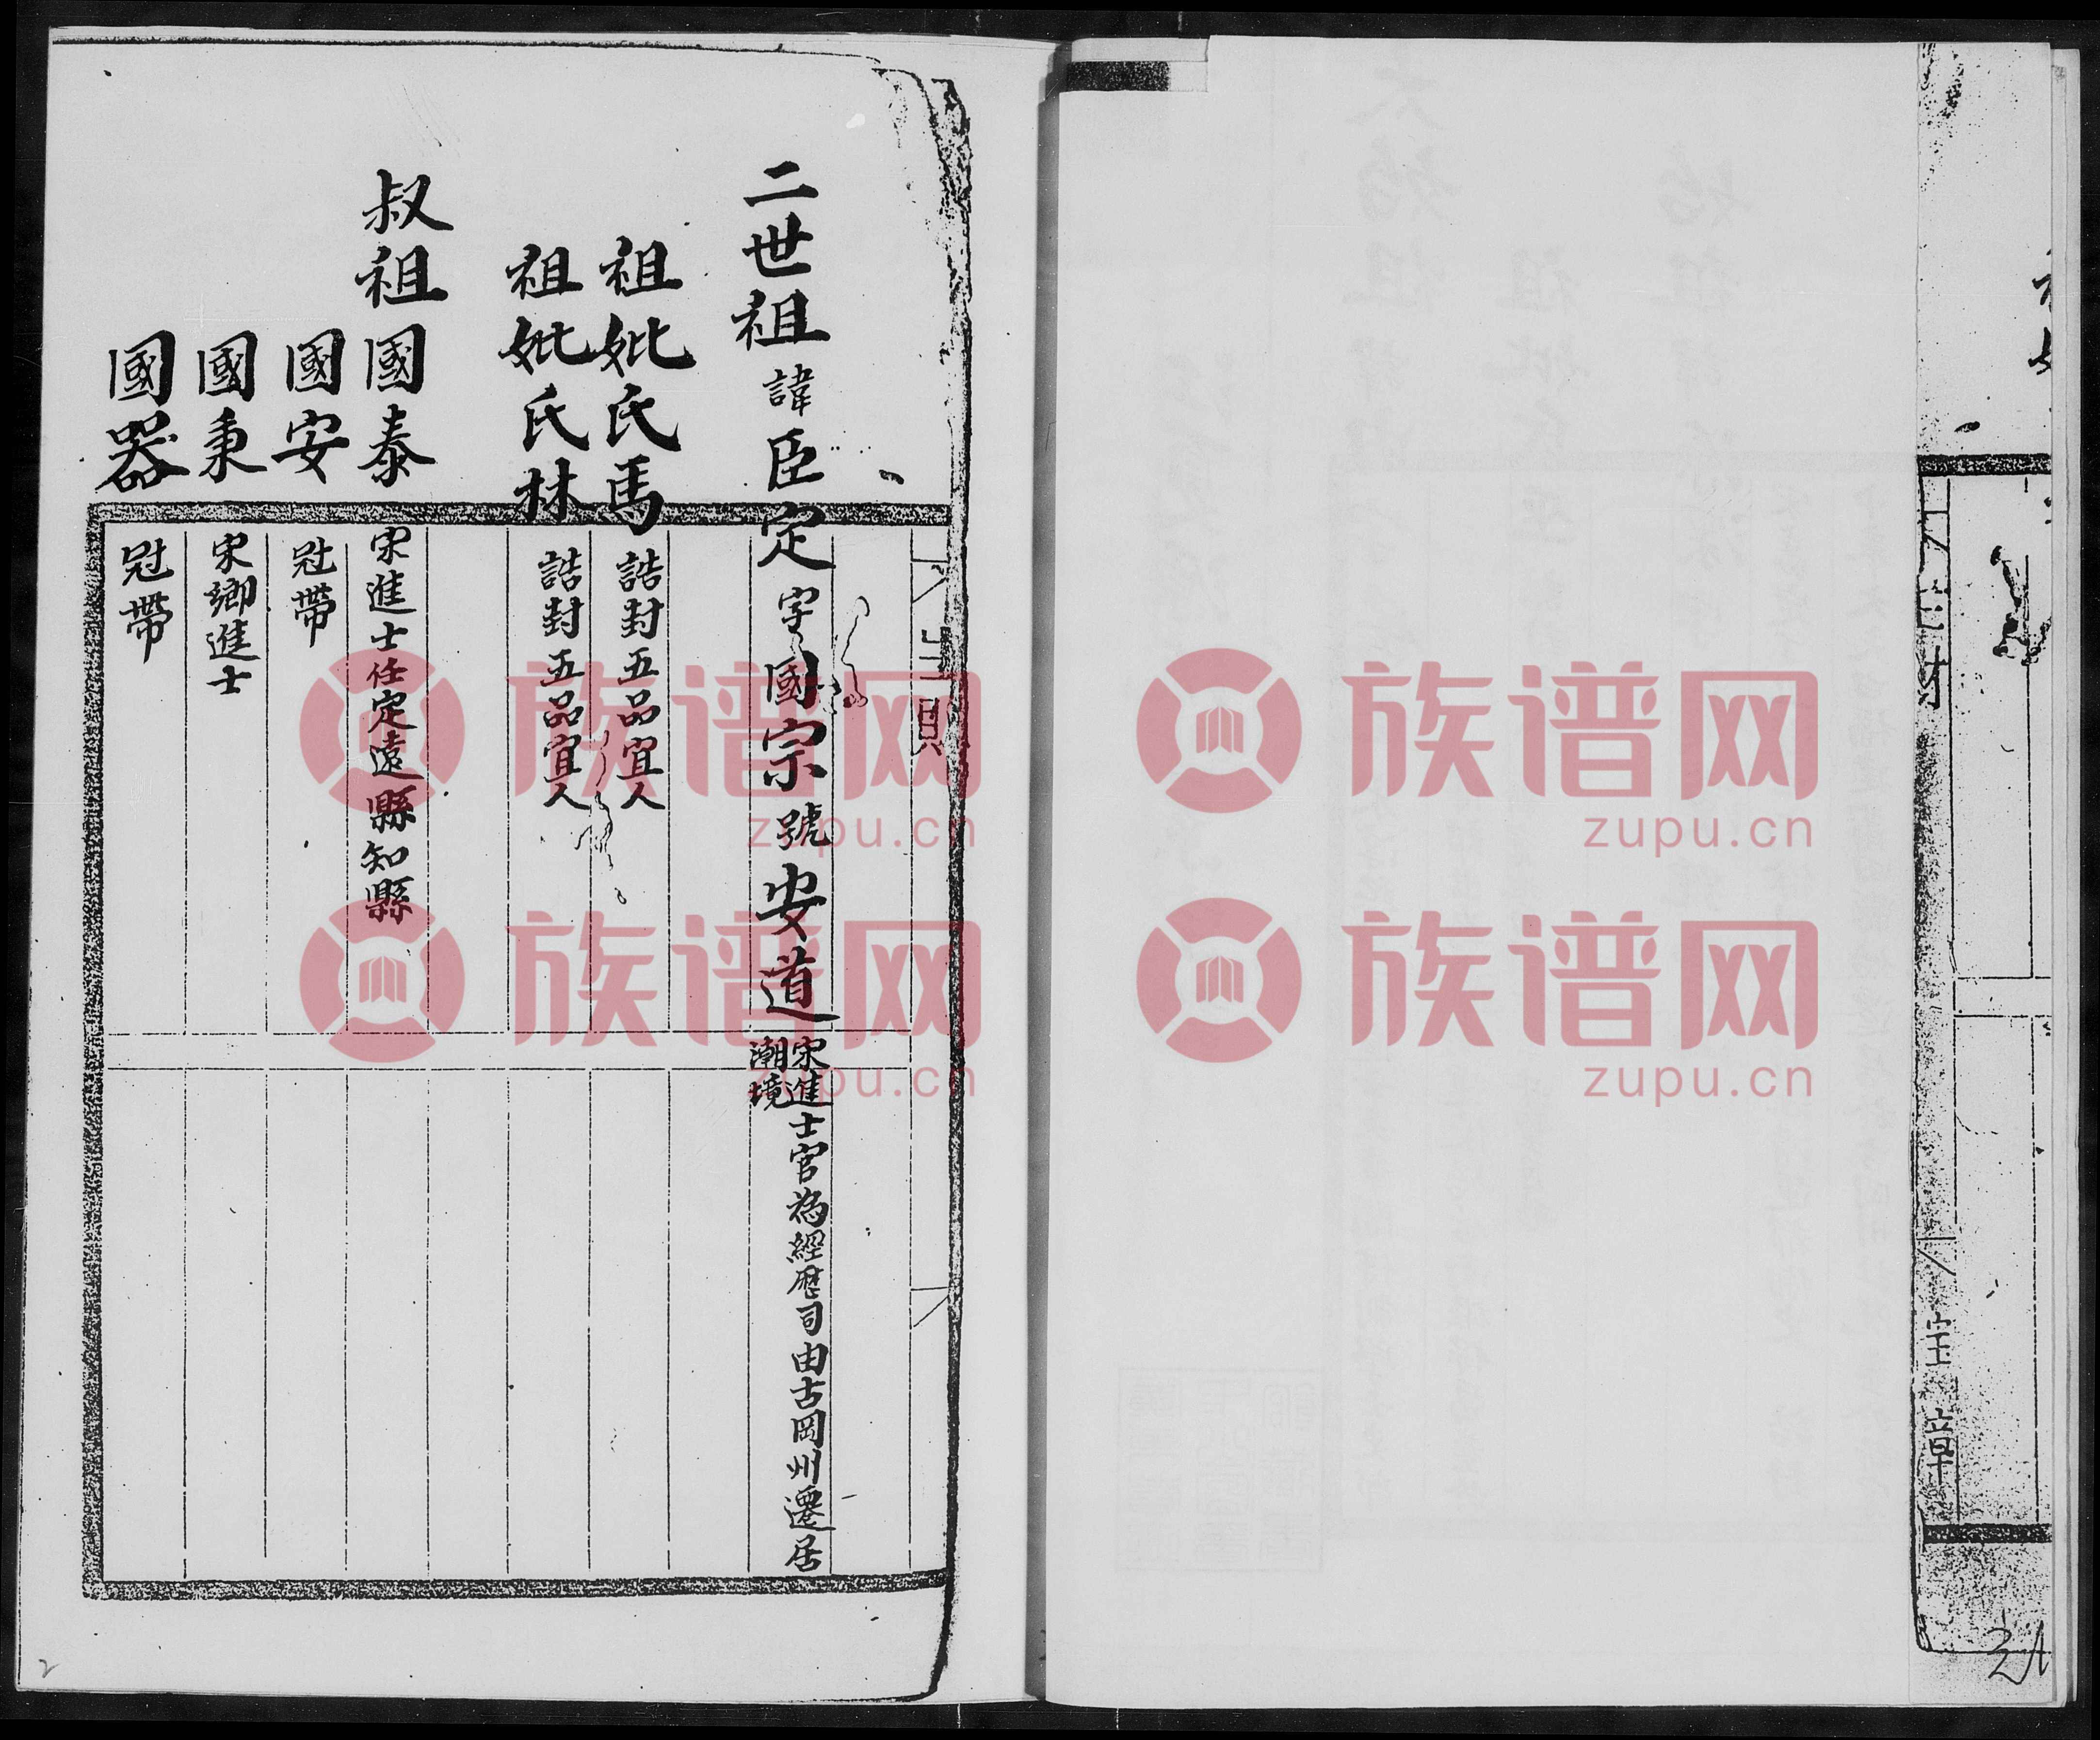 二世祖諱臣定字國宗號安道宋進士官為經歷司由古岡州遷居
潮境
祖妣氏馬誥封五品宜人
祖妣氏林誥封五品宜人
叔祖國泰宋進士任定遠縣知縣
國安冠帶
國秉宋鄉進士
國器冠帶
2
族谱网
zupu.cn
族谱网
zupu.cn
族谱网
zupu.cn
族谱网
zupu.cn